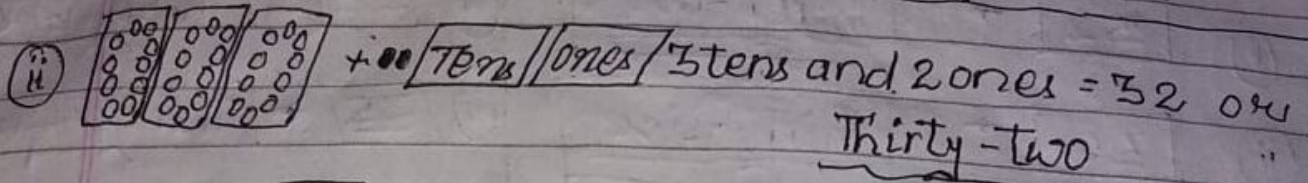 (ii) + Tens ones 3 tens and 2 ones = 32 or
Thirty-Two